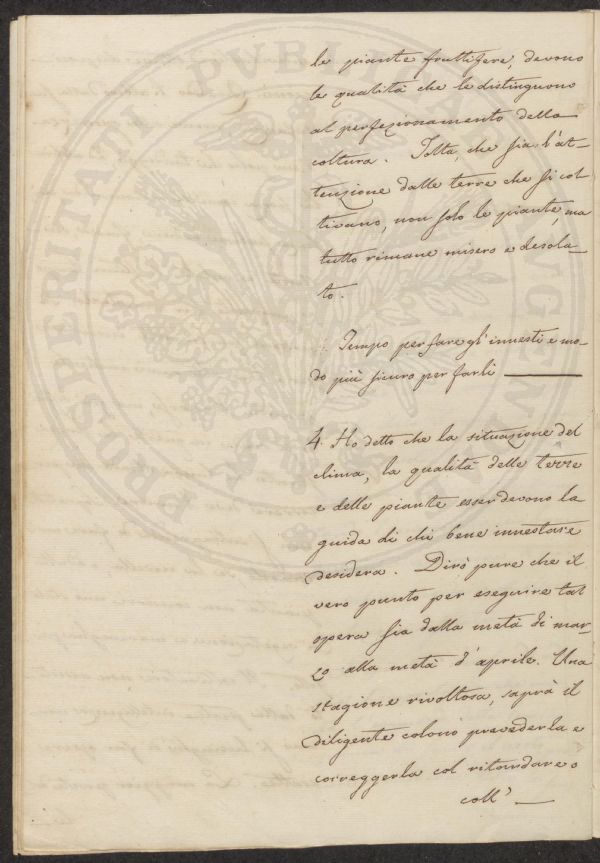 le piante fruttifere, devono
le qualità che le distinguono
al perfezionamento della
coltura. Tolta, che sia l'at-
tenzione dalle terre che si col-
tivano, non solo le piante, ma
tutto rimane misero e desola-
to.
Tempo per fare gl'innesti e mo-
do più sicuro per farli
4. Ho detto che la situazione del
clima, la qualità delle terre
e delle piante esser devono la
guida di chi bene innestare
desidera. Dirò pure che il
vero punto per eseguire tal
opera sia dalla metà di mar-
zo alla metà d'aprile. Una
stagione rivoltosa, saprà il
diligente colono prevederla e
correggerla col ritardare o
coll'
PROSPERITATI PUBLICAE AUGENDAE